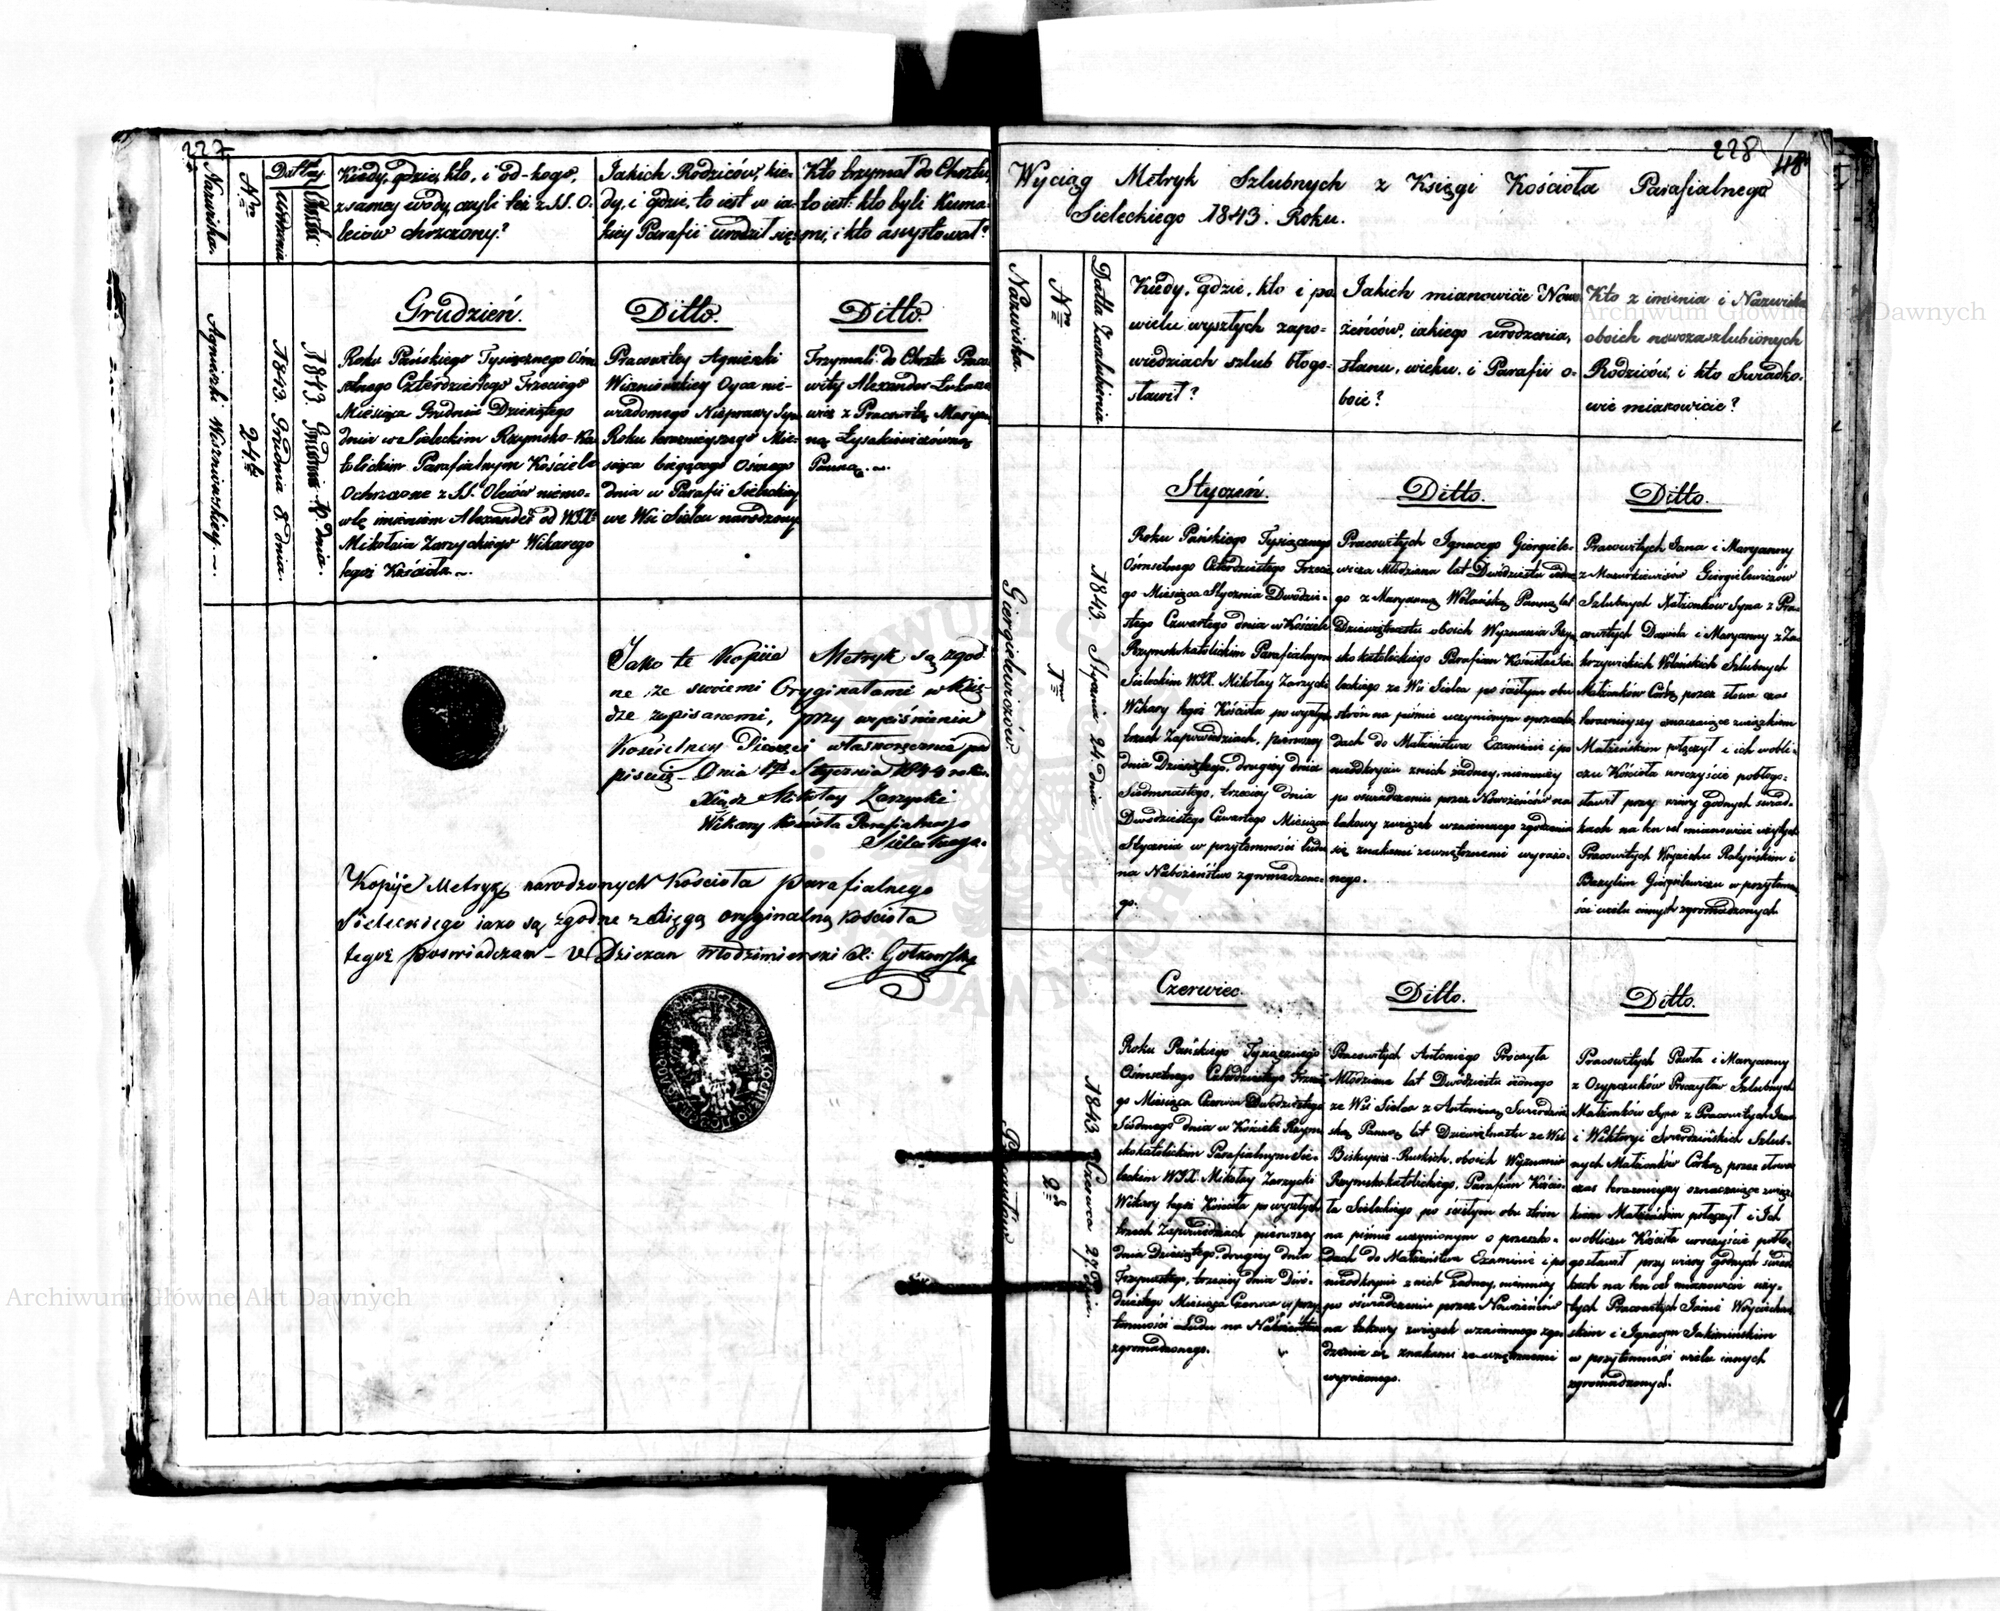 227
Nazwiska.
Nro
Datta
Urodzenia
Chrztu
Kiedy, gdzie, kto, i od kogo,
z samey wody, czyli też z SS. O-
leiów chrzczony?
Jakich Rodziców, kie-
dy, i gdzie, to iest w ia-
kiey Parafii urodził się:
Kto trzymał do Chrztu,
to iest: kto byli Kuma-
mi, i kto assystował?
Agnieszki Wiszniewskiey.
24.
1843. Grudnia 8. dnia.
1843. Grudnia 10. dnia.
Grudzień.
Roku Pańskiego Tysiącznego Ośm-
setnego Czterdziestego Trzeciego
Miesiąca Grudnia Dziesiątego
dnia w Sieleckim Rzymsko-Ka-
tolickim Parafialnym Kościele
Ochrzczone z SS. Oleiów niemo-
wlę imieniem Alexander od WJXa
Mikołaia Zarzyckiego Wikarego
tegoż Kościoła.
Ditto.
Pracowitey Agnieszki
Wiszniewskiey Oyca nie-
wiadomego Nieprawy Syn
Roku teraznieyszego Mie-
siąca bieżącego Osmego
dnia w Parafii Sieleckiey
we Wsi Sielcu narodzony
Ditto.
Trzymali do Chrztu Praco-
wity Alexander
wicz z Pracowitą Maryan-
ną Łysakiewiczówną
Panną.
Jako te Kopiie Metryk są zgod-
ne ze swoiemi Oryginałami w Księ-
dze zapisanemi, przy wyciśnieniu
Kościelney Pieczęci własnoręcznie pod-
pisuię – Dnia 1go Stycznia 1844 roku.
Xiądz Mikołay Zarzycki
Wikary Kościoła Parafialnego
Sieleckiego.
Kopije Metryk narodzonych Kościoła parafialnego
Sieleckiego iako są zgodne z Xięgą oryginalną Kościoła
tegoż poswiadczam – V Dziekan Włodzimierski X: Gotkowski
228
118
Wyciąg Metryk Szlubnych z Księgi Kościoła Parafialnego
Sieleckiego 1843. Roku.
Nazwiska.
Nro
Datta Zaszlubienia
Kiedy, gdzie, kto i po
wielu wyszłych zapo-
wiedziach szlub błogo-
sławił?
Jakich mianowicie Nowo-
żeńców, iakiego urodzenia,
stanu, wieku, i Parafii o-
boie?
Kto z imienia i Nazwiska
oboich nowozaszlubionych
Rodziców, i kto Swiadko-
wie mianowicie?
Giergielewiczów.
1.
1843. Stycznia 24. dnia.
Styczeń.
Roku Pańskiego Tysiącznego
Ośmsetnego Czterdziestego Trzecie-
go Miesiąca Stycznia Dwudzie-
stego Czwartego dnia w Kościele
Rzymskokatolickim Parafialnym
Sieleckim WJX. Mikołay Zarzycki
Wikary tegoż Kościoła po wyszłych
trzech Zapowiedziach, pierwszey
dnia Dziesiątego, drugiey dnia
Siedmnastego, trzeciey dnia
Dwudziestego Czwartego Miesiąca
Stycznia w przytomności ludu
na Nabożeństwo zgromadzone-
go.
Ditto.
Pracowitych Ignacego Giergiele-
wicza Młodziana lat Dwódziestu iedne-
go z Maryanną Wolańską Panną lat
Dziewiętnastu oboich Wyznania Rzym-
sko katolickiego Parafian Kościoła Sie-
leckiego ze Wsi Sielca po ścisłym obu
stron na piśmie uczynionym o przeszko-
dach do Małżeństwa Examinie i po
nieodkryciu z nich żadney, niemniey
po oswiadczeniu przez Nowożeńców na
takowy związek wzaiemnego zgodzenia
się znakami zewnętrznemi wyrażo-
nego.
Ditto.
Pracowitych Jana i Maryanny
z Mazurkiewiczów Giergielewiczów
Szlubnych Małżonków Syna z Pra-
cowitych Dawida i Maryanny z Za-
krzewskich Wolańskich Szlubnych
Małżonków Córką przez słowa czas
teraznieyszy oznaczaiące związkiem
Małżeńskim połączył i ich w obli-
czu Kościoła uroczyście pobłogo-
sławił przy wiary godnych swiad-
kach na ten cel mianowicie użytych
Pracowitych Woyciechu Ratyńskim i
Bazylim Giergielewiczu w przytomno-
ści wielu innych zgromadzonych
Proczytów
2.
1843. Czerwca 27. dnia.
Czerwiec.
Roku Pańskiego Tysiącznego
Ośmsetnego Czterdziestego Trzecie-
go Miesiąca Czerwca Dwódziestego
Siódmego dnia w Kościele Rzym-
skokatolickim Parafialnym Sie-
leckim WJX. Mikołay Zarzycki
Wikary tegoż Kościoła po wyszłych
trzech Zapowiedziach pierwszey
dnia Dziesiątego, drugiey dnia
Trzynastego, trzeciey dnia Dwó-
dziestego Miesiąca Czerwca w przy-
tomności Ludu na Nabożeństwo
zgromadzonego.
Ditto.
Pracowitych Antoniego Proczyta
Młodziana lat Dwódziestu iednego
ze Wsi Sielca z Antoniną Swirodzin-
ską Panną lat Dziewiętnastu ze Wsi
Biskupicz-Ruskich, oboich Wyznania
Rzymskokatolickiego, Parafian Kościo-
ła Sieleckiego po ścisłym obu stron
na piśmie uczynionym o przeszko-
dach do Małżeństwa Examinie i po
nieodkryciu z nich żadney, niemniey
po oswiadczeniu przez Nowożeńców
na takowy związek wzaiemnego zgo-
dzenia się znakami zewnętrznemi
wyrażonego.
Ditto.
Pracowitych Pawła i Maryanny
z Osypczuków Proczytów Szlubnych
Małżonków Syna z Pracowitych Jana
i Wiktoryi Swirodzińskich Szlub-
nych Małżonków Córką przez słowa
czas teraznieyszy oznaczaiące związ-
kiem Małżeńskim połączył i Ich
w obliczu Kościoła uroczyście pobło-
gosławił przy wiary godnych swiad-
kach na ten cel mianowicie uży-
tych Pracowitych Janie Woyciechow-
skim i Ignacym Jakimińskim
w przytomności wielu innych
zgromadzonych.
Archiwum Główne Akt Dawnych
Archiwum Główne Akt Dawnych